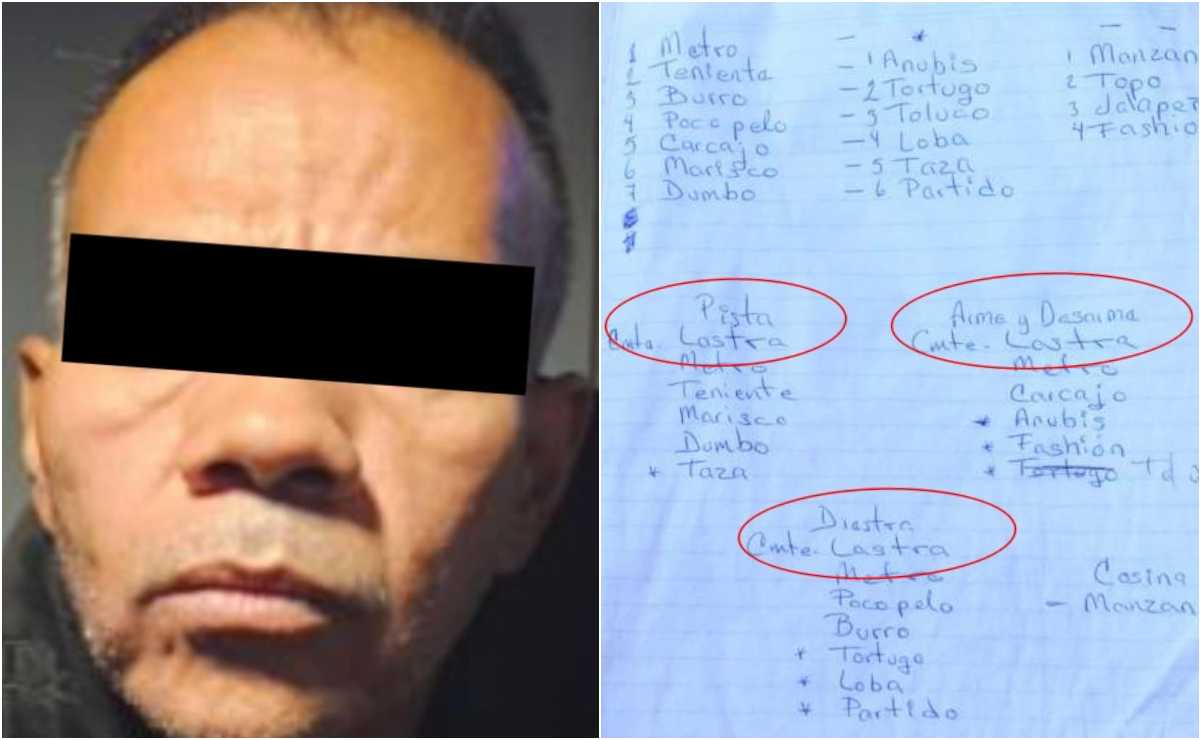 1 Metro
2 Tenienta
3 Burro
4 Poco pelo
5 Carcajo
6 Marisco
7 Dumbo
— *
— 1 Anubis
— 2 Tortugo
— 3 Toluco
— 4 Loba
— 5 Taza
— 6 Partido
— —
1 Manzan
2 Topo
3 Jalape
4 Fashio
Pista
Cmte. Lastra
Metro
Teniente
Marisco
Dumbo
* Taza
Arme y Desarme
Cmte. Lastra
Metro
Carcajo
* Anubis
* Fashión
* Tortugo
Diestra
Cmte. Lastra
Metro
Poco pelo
Burro
* Tortugo
* Loba
* Partido
Cosina
— Manzan